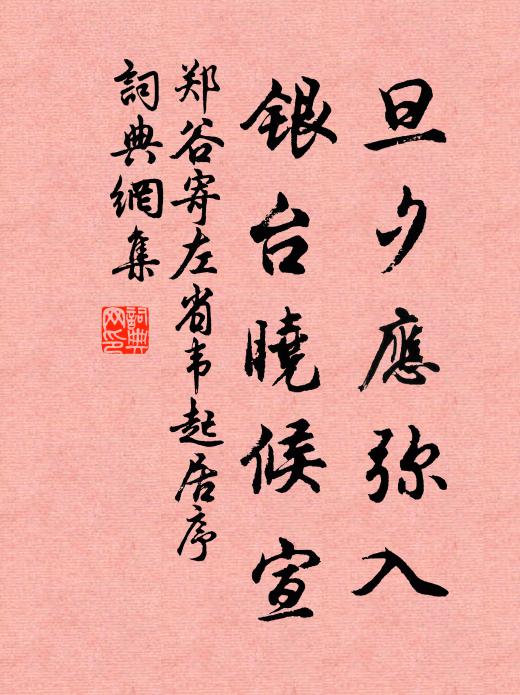 旦夕應弥入
銀台曉候宣
郑谷寄左省韦起居序
詞典網集
詞典网印